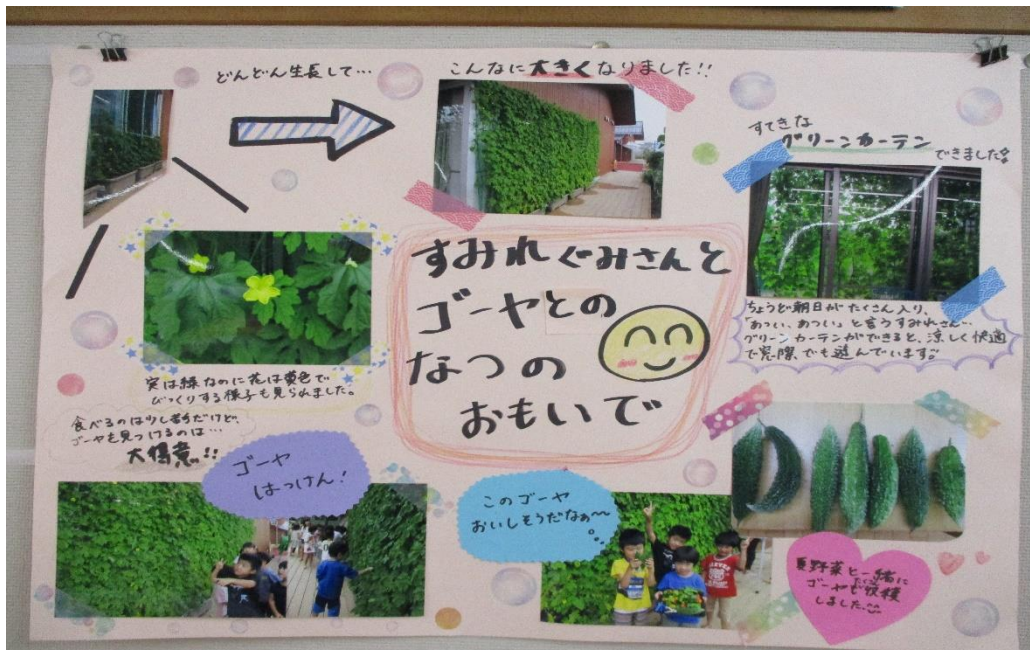 どんどん生長して…
こんなに大きくなりました!!
すてきな
グリーンカーテン
できました
すみれぐみさんと
ゴーヤとの
なつの
おもいで
ちょうど朝日がたくさん入り、
「あつい、あつい」と言うすみれさん…
グリーンカーテンができると、涼しく快適
で窓際でも遊んでいます
実は緑なのに花は黄色で
びっくりする様子も見られました。
食べるのは少し苦手だけど、
ゴーヤを見つけるのは…
大得意!!
ゴーヤ
はっけん!
このゴーヤ
おいしそうだなぁ〜
夏野菜と一緒に
ゴーヤも収穫
しました